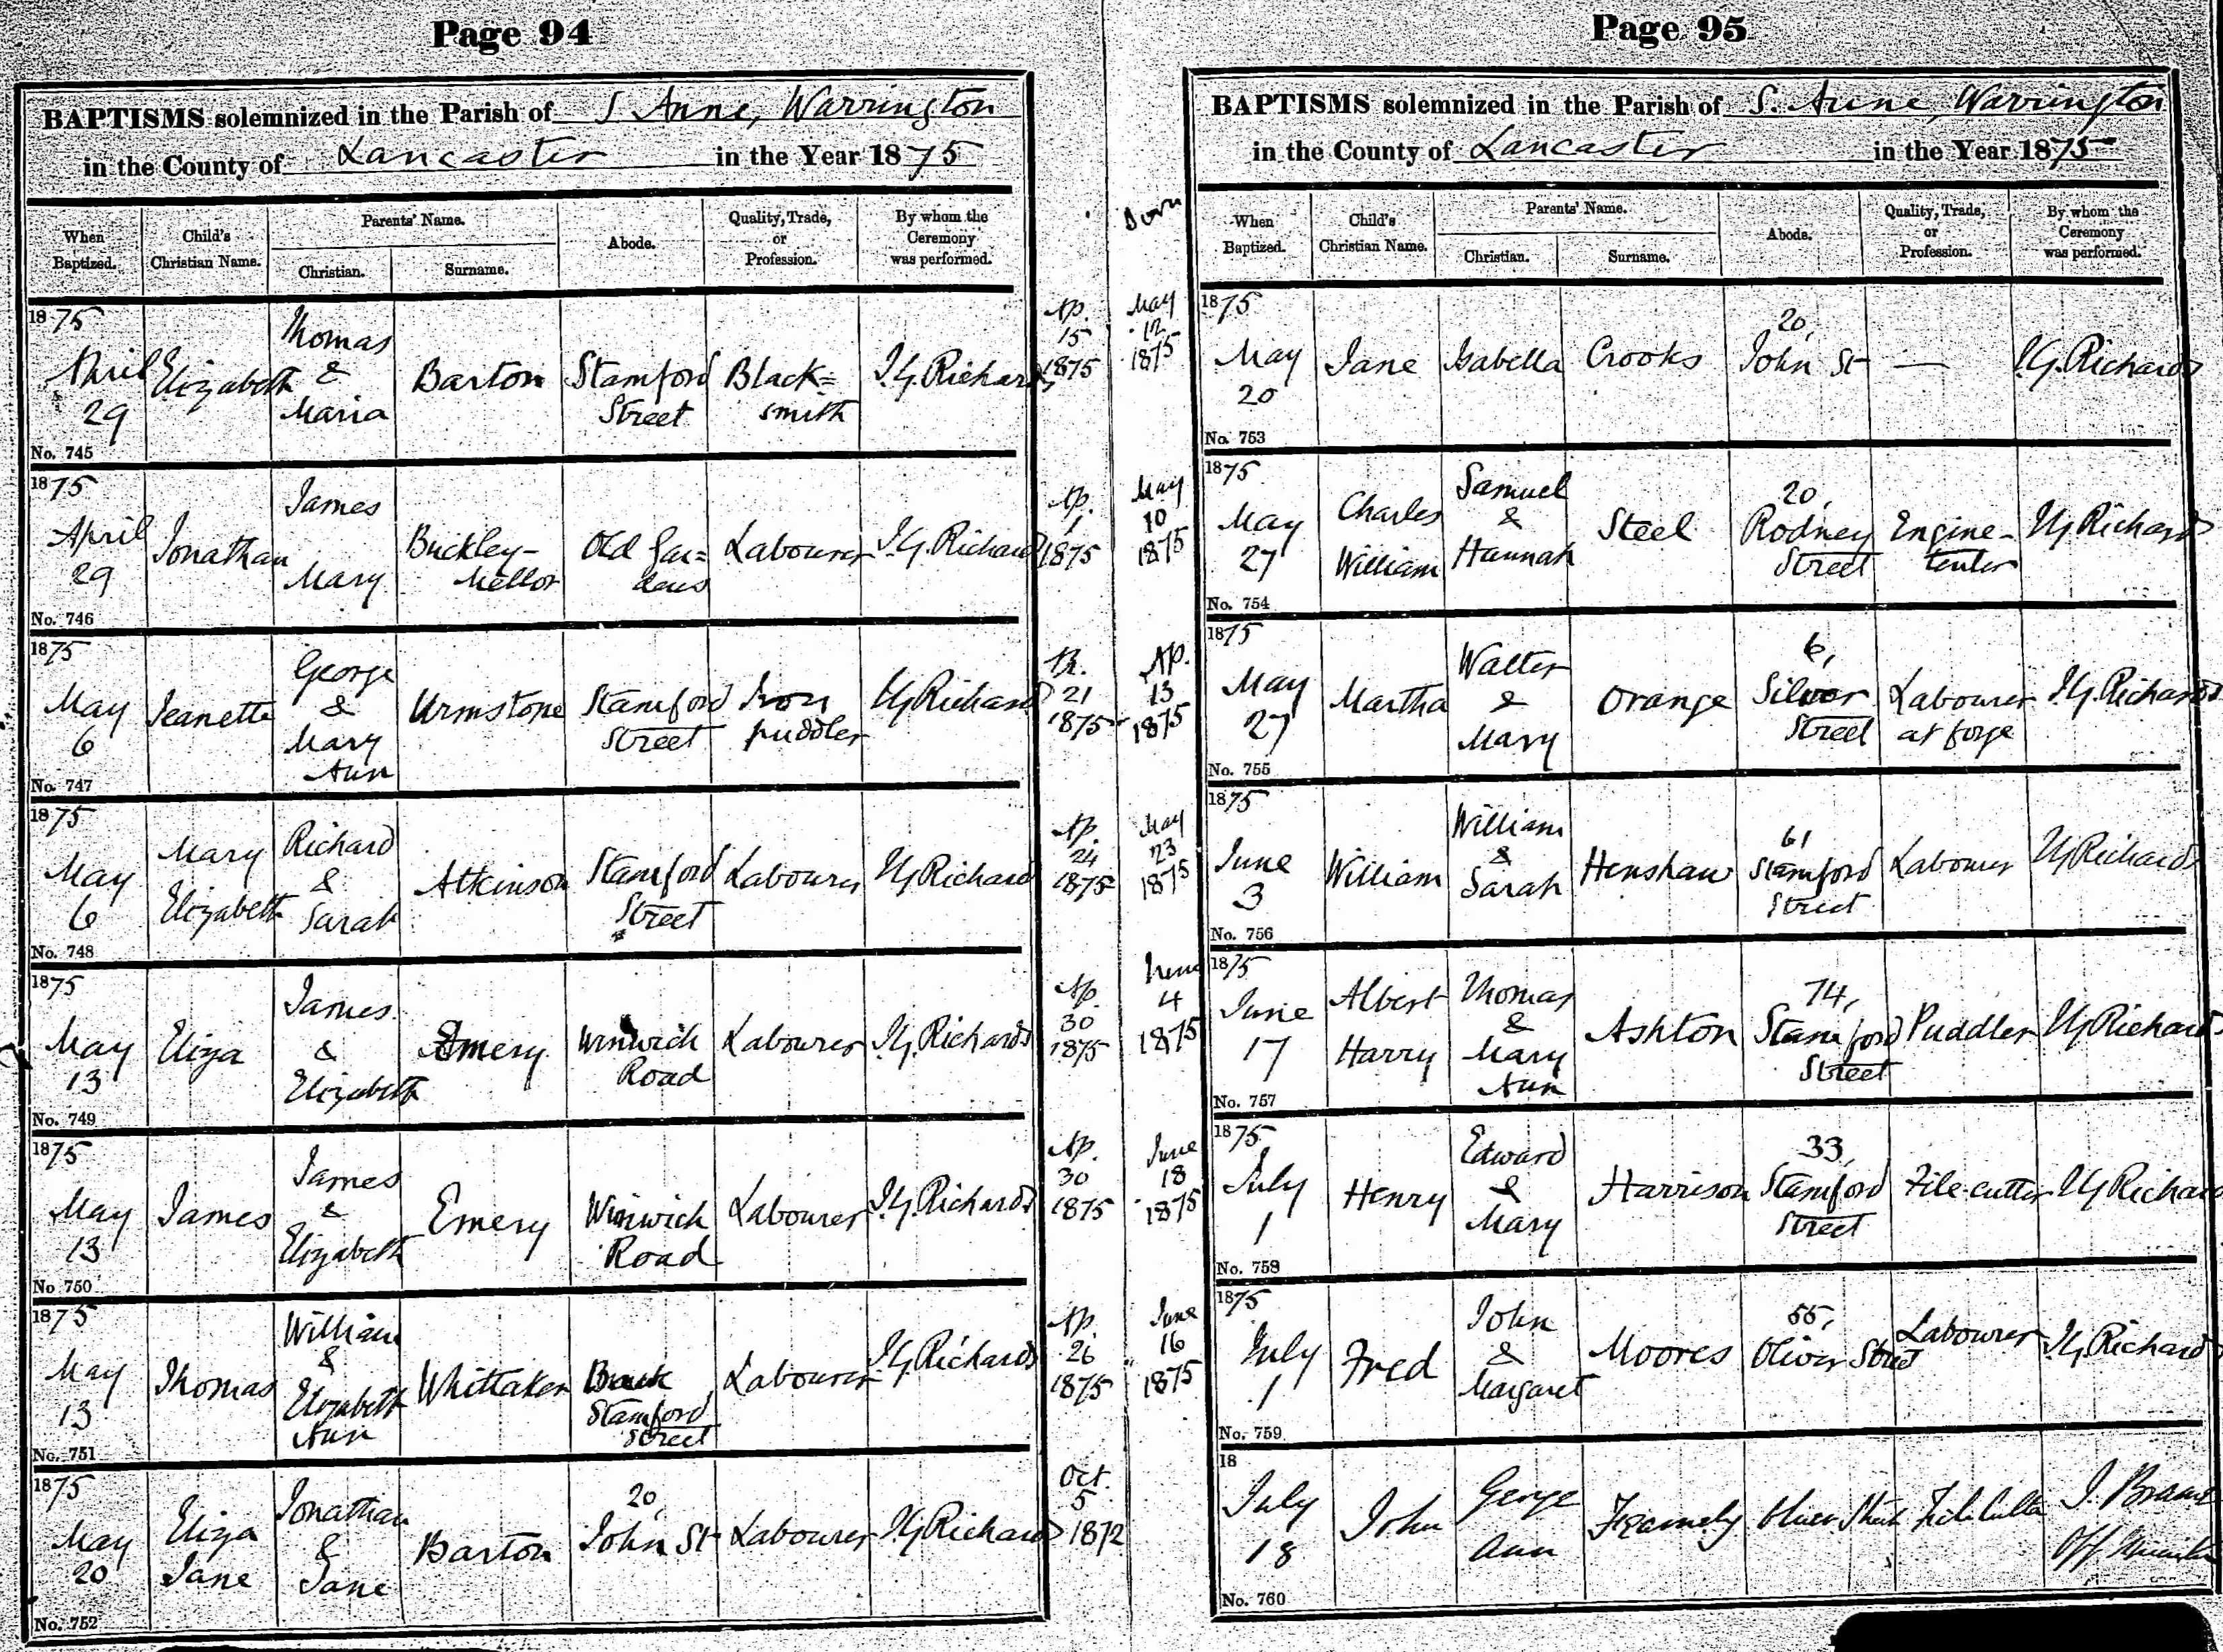 Page 94
BAPTISMS solemnized in the Parish of S Anne, Warrington
in the County of Lancaster in the Year 1875
When Baptized.
Child's Christian Name.
Parents' Name.
Christian.
Surname.
Abode.
Quality, Trade, or Profession.
By whom the Ceremony was performed.
1875
April 29
Elizabeth
Thomas & Maria
Barton
Stamford Street
Black=smith
J.G. Richards
Ap. 15 1875
No. 745
1875
April 29
Jonathan
James
Mary
Buckley-Mellor
Old Gar=dens
Labourer
J.G. Richards
Ap. 1 1875
No. 746
1875
May 6
Jeanette
George & Mary Ann
Urmstone
Stamford Street
Iron puddler
J G Richards
21 1875
No. 747
1875
May 6
Mary Elizabeth
Richard & Sarah
Atkinson
Stamford Street
Labourer
J G Richards
Ap. 24 1875
No. 748
1875
May 13
Eliza
James & Elizabeth
Emery
Winwick Road
Labourer
J.G. Richards
Ap. 30 1875
No. 749
1875
May 13
James
James & Elizabeth
Emery
Winwick Road
Labourer
J.G. Richards
Ap. 30 1875
No. 750
1875
May 13
Thomas
William & Elizabeth Ann
Whittaker
Back Stamford Street
Labourer
J G Richards
Ap. 26 1875
No. 751
1875
May 20
Eliza Jane
Jonathan & Jane
Barton
20, John St
Labourer
J G Richards
Oct. 5 1872
No. 752
Page 95
BAPTISMS solemnized in the Parish of S. Anne, Warrington
in the County of Lancaster in the Year 1875
Born
When Baptized.
Child's Christian Name.
Parents' Name.
Christian.
Surname.
Abode.
Quality, Trade, or Profession.
By whom the Ceremony was performed.
May 12 1875
1875
May 20
Jane
Isabella
Crooks
20, John St
—
J.G. Richards
No. 753
May 10 1875
1875
May 27
Charles William
Samuel & Hannah
Steel
20, Rodney Street
Engine-tenter
J G Richards
No. 754
Ap. 13 1875
1875
May 27
Martha
Walter & Mary
Orange
6, Silver Street
Labourer at forge
J.G. Richards
No. 755
May 23 1875
1875
June 3
William
William & Sarah
Henshaw
61 Stamford Street
Labourer
J G Richards
No. 756
June 4 1875
1875
June 17
Albert Harry
Thomas & Mary Ann
Ashton
74, Stamford Street
Puddler
J G Richards
No. 757
June 18 1875
1875
July 1
Henry
Edward & Mary
Harrison
33, Stamford Street
File-cutter
J G Richards
No. 758
June 16 1875
1875
July 1
Fred
John & Margaret
Moores
55, Oliver Street
Labourer
J.G. Richards
No. 759
18
July 18
John
George
Ann
Oliver Street
File Cutter
J.
Off Minister
No. 760